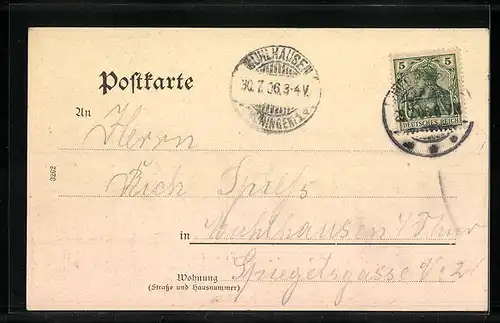 Postkarte
MÜHLHAUSEN
30.7.06.3-4V.
(THÜRINGEN) 1 a
5 5
DEUTSCHES REICH
An Herrn
Rich Spieß
in Mühlhausen i/Thür
Wohnung Spiegelsgasse No 2
(Straße und Hausnummer)
3262